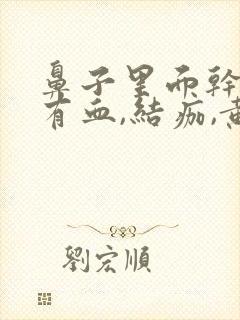 鼻子里而幹
有血,結痂,黃
劉宏順